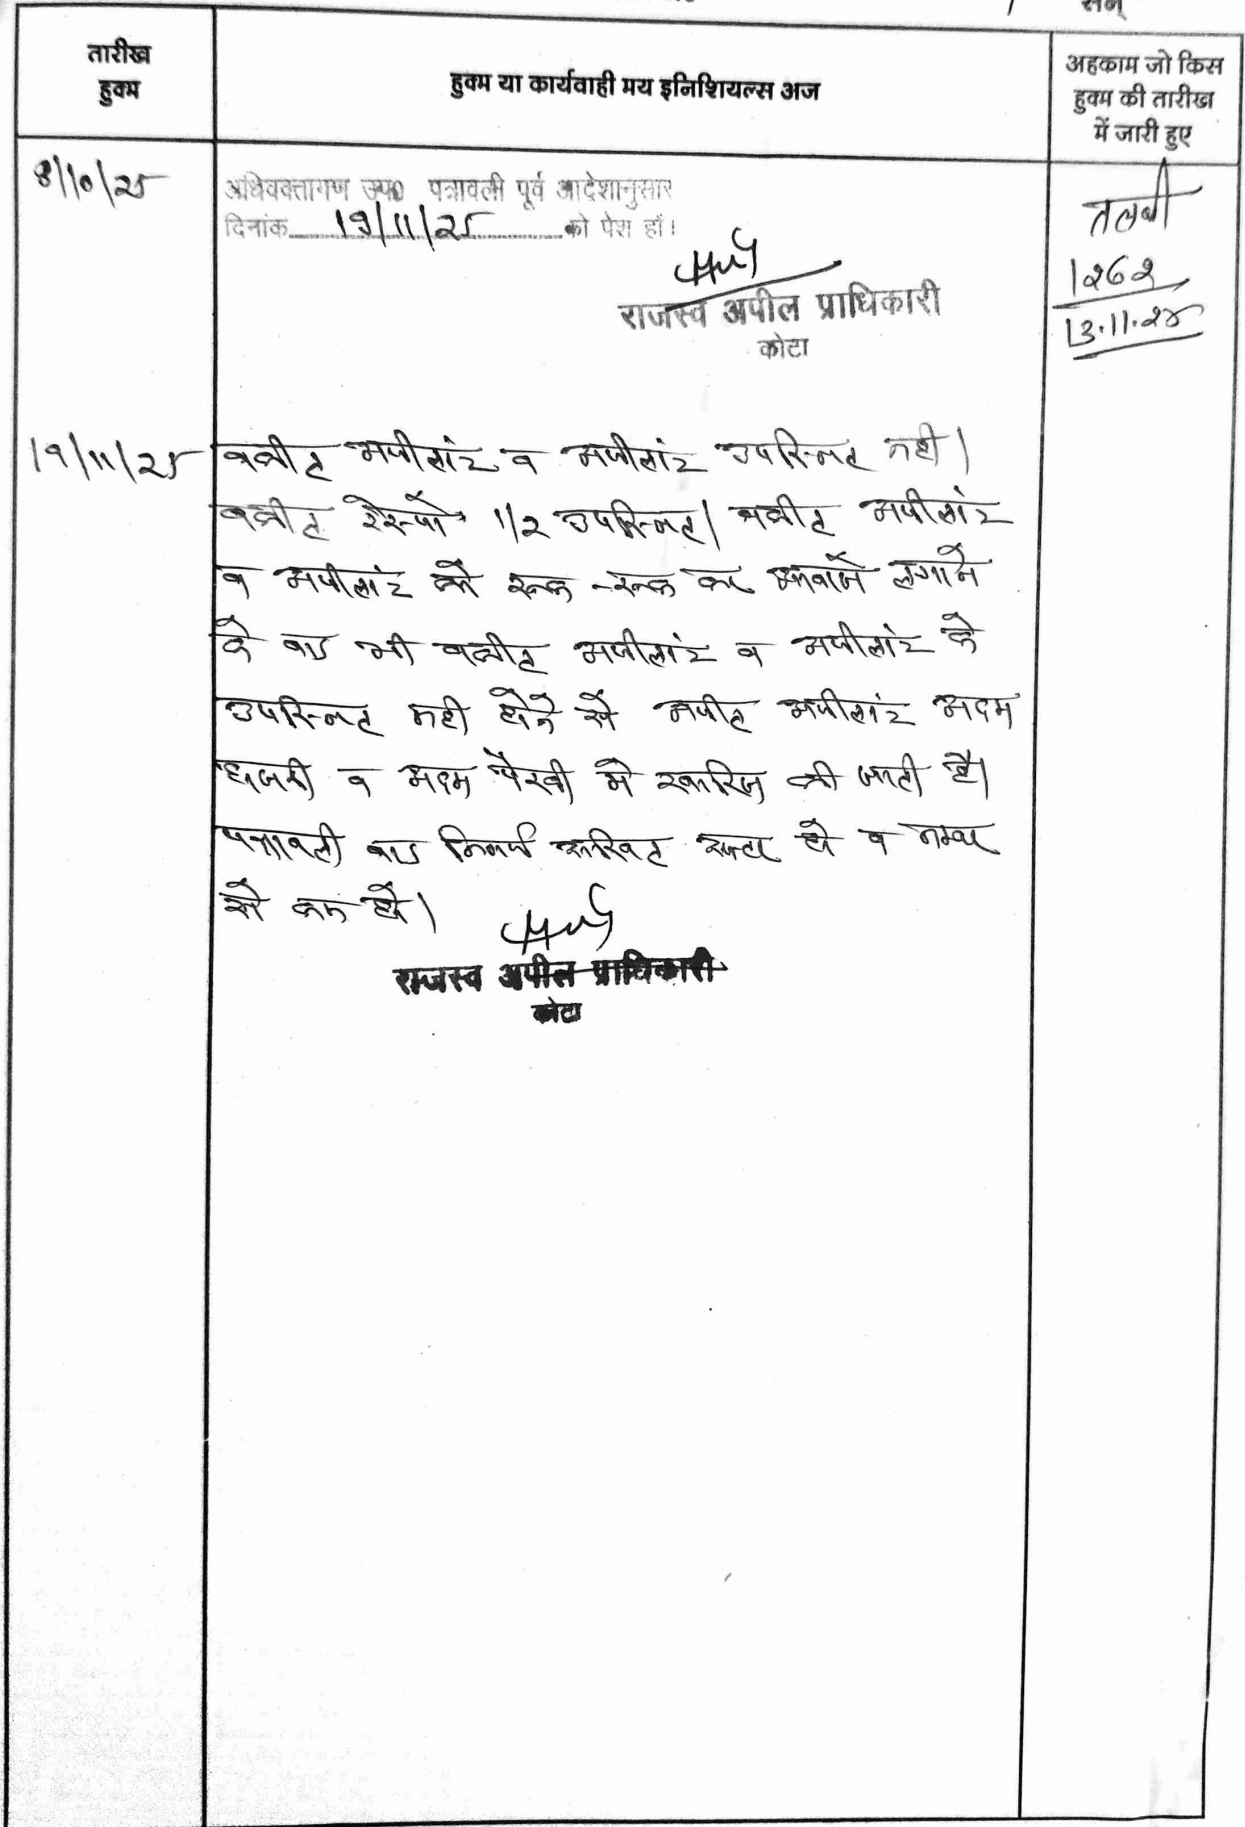 सन्
तारीख
हुक्म
हुक्म या कार्यवाही मय इनिशियल्स अज
अहकाम जो किस
हुक्म की तारीख
में जारी हुए
8/10/25
अधिवक्तागण उप0 पत्रावली पूर्व आदेशानुसार
दिनांक 19/11/25 को पेश हों।
राजस्व अपील प्राधिकारी
कोटा
तलबी
1262
13.11.25
19/11/25
वकील अपीलांट व अपीलांट उपस्थित नहीं।
वकील रेस्पो 1/2 उपस्थित। वकील अपीलांट
व अपीलांट को रूक-रूक कर आवाजें लगाने
के बाद भी वकील अपीलांट व अपीलांट के
उपस्थित नहीं होने से अपील अपीलांट अदम
हाजरी व अदम पैरवी में खारिज की जाती है।
पत्रावली बाद निर्णय दाखिल दफ्तर हो व नम्बर
से कम हो।
राजस्व अपील प्राधिकारी
कोटा